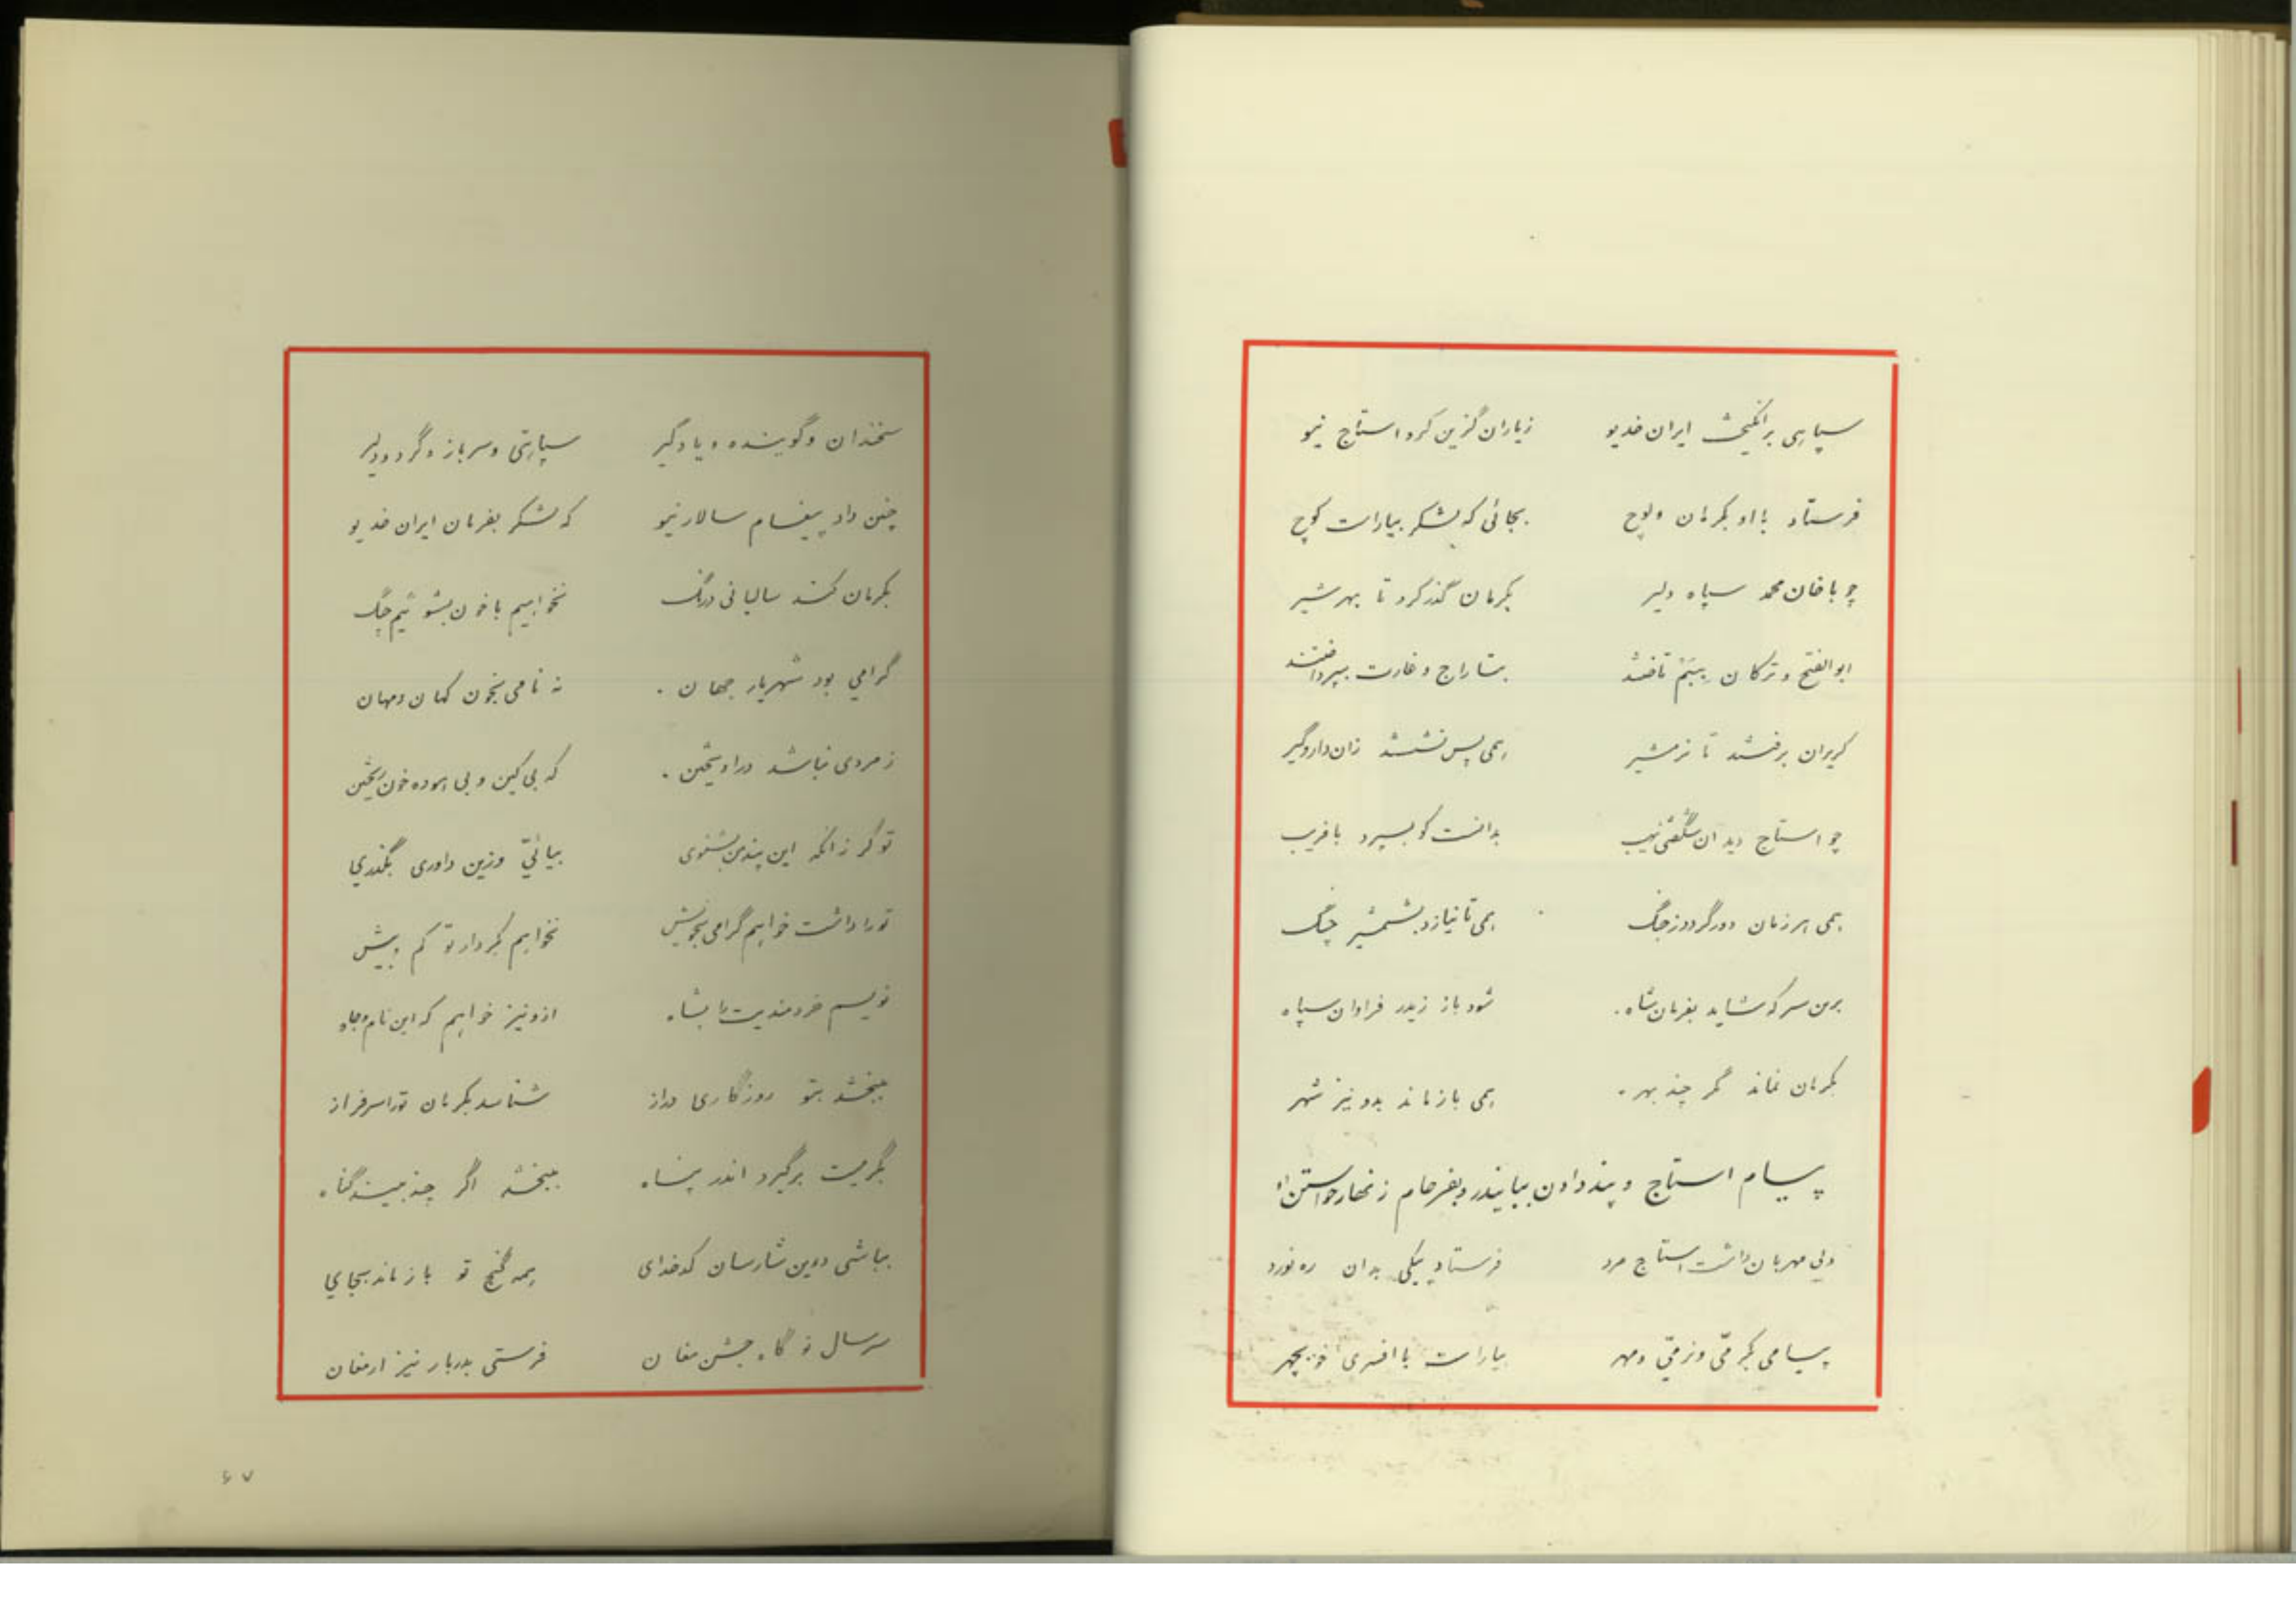 سپاهی برانگیخت ایران خدیو زیاران گزین کرد استاج نیو
فرستاد با او بکرمان ولوح بجائی که لشکر بیاراست کوچ
چو با خان محمد سپاه دلیر بکرمان گذر کرد تا بهرشیر
ابوالفتح و ترکان ببم تاختند بتاراج و غارت بپرداختند
گریزان برفتند تا نرمشیر همی پس نشستند زان داروگیر
چو استاج دید ان شگفتی نهیب بدانست کو بسپرد با فریب
همی هر زمان دور گردد ز جنگ همی تا نیازد بشمشیر چنگ
برین سر که شاید بفرمان شاه شود باز زیدر فراوان سپاه
بکرمان نماند مگر چند بهر همی باز ماند بدو نیز شهر
پیام استاج و پند دادن ببایندر و بفرجام زنهار خواستن او
ولی مهربان داشت استاج مرد فرستاد پیکی بدان ره نورد
پیامی بگرمی و نرمی و مهر بیاراست با افسری خوبچهر
سخندان و گوینده و یادگیر سپاهی و سرباز و گرد و دلیر
چنین داد پیغام سالار نیو که لشکر بفرمان ایران خدیو
بکرمان کند سالیانی درنگ نخواهیم با خون بشوئیم چنگ
گرامی بود شهریار جهان نه نامی بخون کهان و مهان
ز مردی نباشد درآویختن که بی کین و بی هوده خون ریختن
تو گر زانکه این پند من بشنوی بیائی وزین داوری بگذری
تو را داشت خواهم گرامی بخویش نخواهم بکردار تو کم و بیش
نویسم خردمندیت را بشاه ازو نیز خواهم که این نام و جاه
ببخشد بتو روزگاری دراز شناسد بکرمان تو را سرفراز
بگرمیت برگیرد اندر پناه ببخشد اگر چند بیند گناه
بباشی درین شارسان کدخدای همه گنج تو باز ماند بجای
سر سال نو گاه جشن مغان فرستی بدربار نیز ارمغان
۶۷